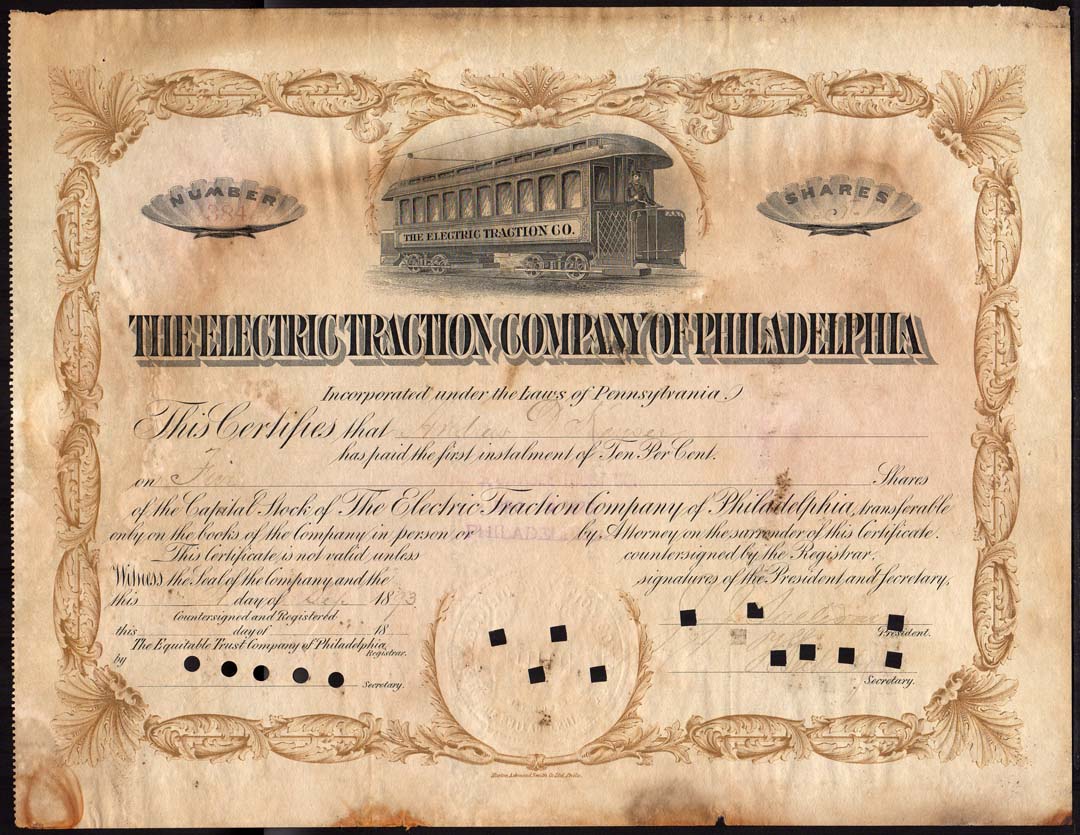 NUMBER
SHARES
THE ELECTRIC TRACTION CO.
THE ELECTRIC TRACTION COMPANY OF PHILADELPHIA
Incorporated under the Laws of Pennsylvania
This Certifies that
has paid the first instalment of Ten Per Cent.
on Five Shares
of the Capital Stock of The Electric Traction Company of Philadelphia, transferable
only on the books of the Company in person or by Attorney on the surrender of this Certificate.
This Certificate is not valid unless countersigned by the Registrar.
Witness the Seal of the Company and the signatures of the President and Secretary,
this day of Sep 1893
Countersigned and Registered
this day of 18
President.
The Equitable Trust Company of Philadelphia,
Registrar.
by
Secretary.
Secretary.